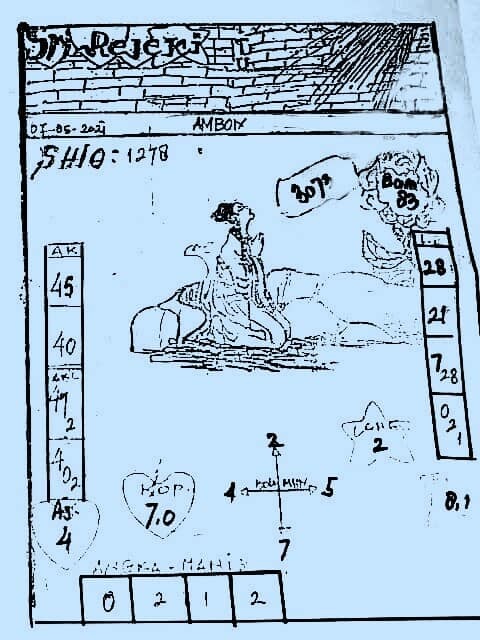 Sri Rejeki
07-05-2021
AMBOIX
SHIO: 1278
3073
Bom
83
AK
45
40
AKL
49
2
4
0
2
As
4
28
21
7
28
0
2
1
KOP
7.0
2
4
5
7
2
8.1
ANGKA-MANIS
0 2 1 2